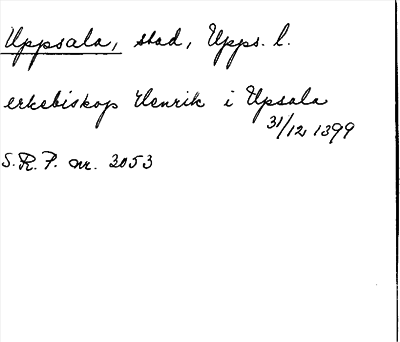 Uppsala, stad, Upps. l.
erkebiskop Henrik i Upsala
31/12 1399
S.R.P. nr. 3053